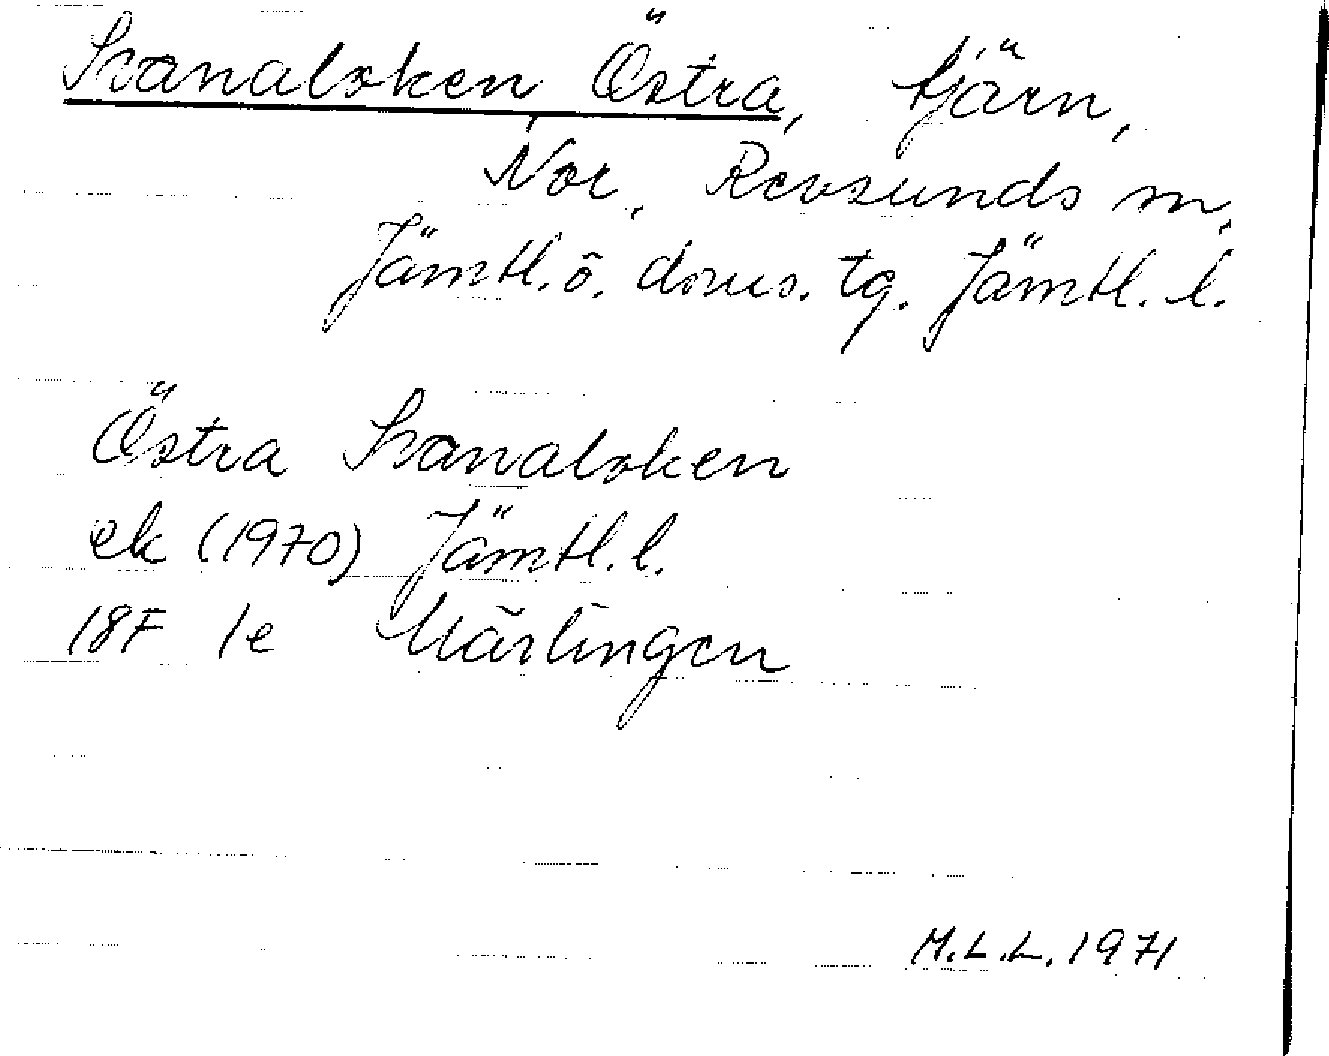 Svanaloken Östra, tjärn,
Nor, Revsunds sn,
Jämtl. ö. doms. tg. Jämtl. l.
Östra Svanaloken
ek (1970) Jämtl. l.
18F 1e Märlingen
M.L.L. 1971